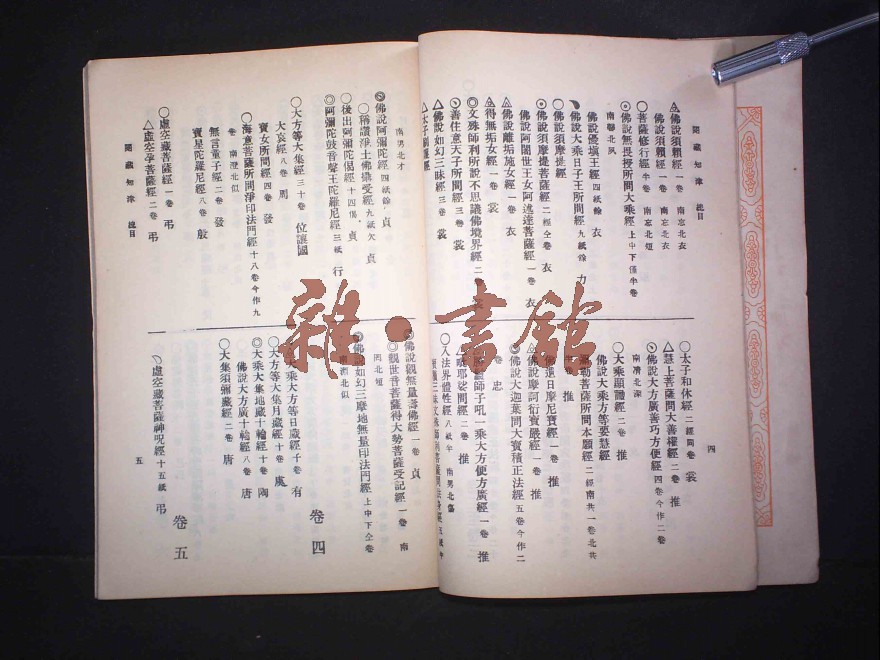 閱藏知津 總目
佛說須賴經一卷 南忘北衣
佛說須賴經一卷 南忘北衣
○菩薩修行經半卷 南忘北短
◎佛說無畏授所問大乘經上中下僅半卷
南聯北夙
佛說優填王經四紙餘 衣
佛說大乘日子王所問經九紙餘 力
○佛說須摩提經
◎佛說須摩提菩薩經二經仝卷 衣
佛說阿闍世王女阿述達菩薩經一卷 衣
佛說離垢施女經一卷 衣
得無垢女經一卷 裳
文殊師利所說不思議佛境界經二卷 裳
善住意天子所問經三卷 裳
△佛說如幻三昧經三卷 裳
△太子
四
○太子和休經二經同卷 裳
△慧上菩薩問大善權經二卷 推
佛說大方廣善巧方便經四卷今作二卷
南凊北深
○大乘顯識經二卷 推
佛說大乘方等要慧經
勒菩薩所問本願經二經南共一卷北共
卷 推
日摩尼寶經一卷 推
佛說摩訶衍寶嚴經一卷 推
◎佛說大迦葉問大寶積正法經五卷今作二
卷 忠
師子吼一乘大方便方廣經一卷 推
耶娑問經二卷 推
○入法界體性經八紙半 南男北傷
南男北才
佛說阿彌陀經四紙餘 貞
○稱讚淨土佛攝受經九紙欠 貞
○後出阿彌陀偈經十四偈 貞
◎阿彌陀鼓音聲王陀羅尼經三紙 行
○大方等大集經三十卷 位讓國
大哀經八卷 周
寶女所問經四卷 發
○海意菩薩所問淨印法門經十八卷今作九
卷 南澄北似
無言童子經二卷 發
寶星陀羅尼經八卷 殷
○虛空藏菩薩經一卷 弔
△虛空孕菩薩經二卷 弔
閱藏知津 總目
佛說觀無量壽佛經一卷 貞
◎觀世音菩薩得大勢菩薩受記經一卷 南
罔北短
佛說如幻三摩地無量印法門經上中下仝卷
南 北似
卷四
大乘大方等日藏經十卷 有
○大方等大集月藏經十卷 虞
◎大乘大集地藏十輪經十卷 陶
佛說大方廣十輪經八卷 唐
○大集須彌藏經二卷 唐
卷五
虛空藏菩薩神呪經十五紙 弔
五
雜·書館